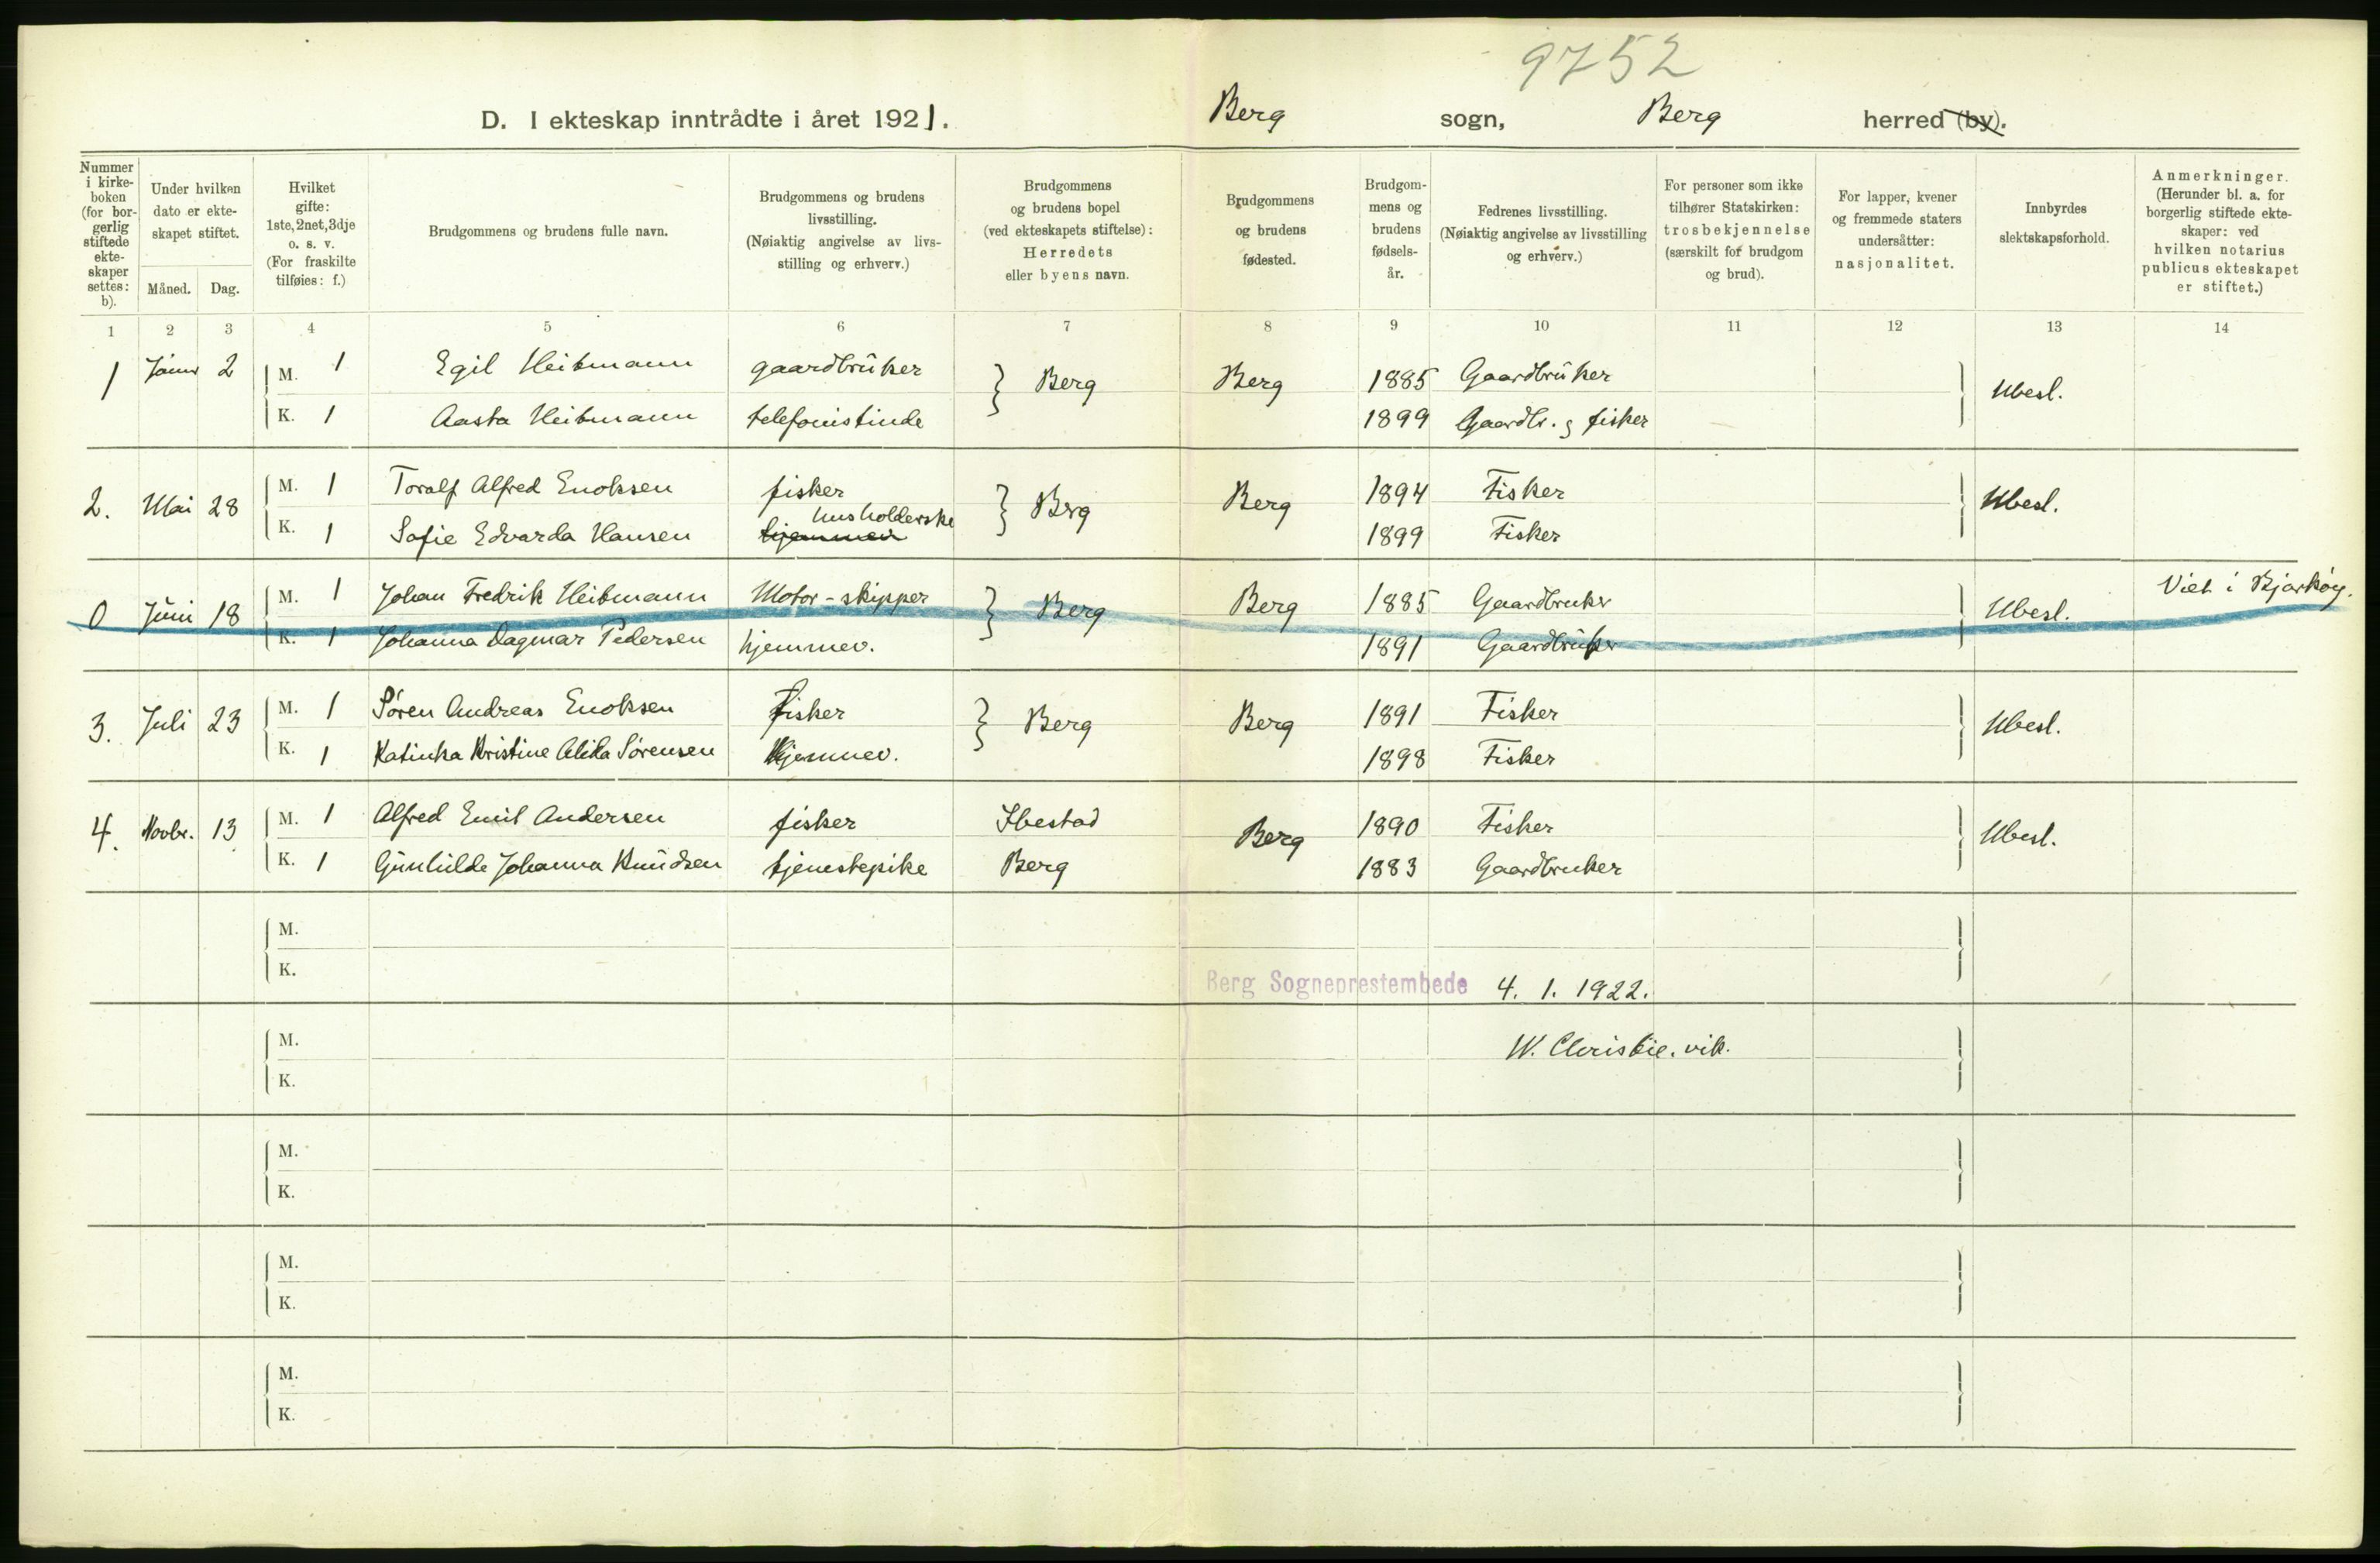 9752
D. I ekteskap inntrådte i året 1921. Berg sogn, Berg herred (by).
Nummer i kirke- boken (for bor- gerlig stiftede ekte- skaper settes: b).
Under hvilken dato er ekte- skapet stiftet.
Måned. Dag.
Hvilket gifte: 1ste, 2net, 3dje o. s. v. (For fraskilte tilføies: f.)
Brudgommens og brudens fulle navn.
Brudgommens og brudens livsstilling. (Nøiaktig angivelse av livs- stilling og erhverv.)
Brudgommens og brudens bopel (ved ekteskapets stiftelse): Herredets eller byens navn.
Brudgommens og brudens fødested.
Brudgom- mens og brudens fødsels- år.
Fedrenes livsstilling. (Nøiaktig angivelse av livsstilling og erhverv.)
For personer som ikke tilhører Statskirken: trosbekjennelse (særskilt for brudgom og brud).
For lapper, kvener og fremmede staters undersåtter: nasjonalitet.
Innbyrdes slektskapsforhold.
Anmerkninger. (Herunder bl. a. for borgerlig stiftede ekte- skaper: ved hvilken notarius publicus ekteskapet er stiftet.)
1 2 3 4 5 6 7 8 9 10 11 12 13 14
1 Janr 2 M. 1 Egil Heitmann gaardbruker Berg Berg 1885 Gaardbruker Ubesl.
K. 1 Aasta Heitmann telefonistinde 1899 Gaardbr. og fisker
2. Mai 28 M. 1 Toralf Alfred Enoksen fisker Berg Berg 1894 Fisker Ubesl.
husholderske
K. 1 Sofie Edvarda Hansen hjemmev 1899 Fisker
0 Juni 18 M. 1 Johan Fredrik Heitmann Motor-skipper Berg Berg 1885 Gaardbruker Ubesl. Viet i Bjarkøy.
K. 1 Johanna Dagmar Pedersen hjemmev. 1891 Gaardbruker
3. Juli 23 M. 1 Søren Andreas Enoksen Fisker Berg Berg 1891 Fisker Ubesl.
K. 1 Katinka Kristine Alida Sørensen Hjemmev. 1898 Fisker
4. Novbr. 13 M. 1 Alfred Emil Andersen fisker Ibestad Berg 1890 Fisker Ubesl.
K. 1 Gunhilde Johanna Knudsen tjenestepike Berg 1883 Gaardbruker
M.
K.
Berg Sogneprestembede 4. 1. 1922.
M.
W. Christie. vik.
K.
M.
K.
M.
K.
M.
K.